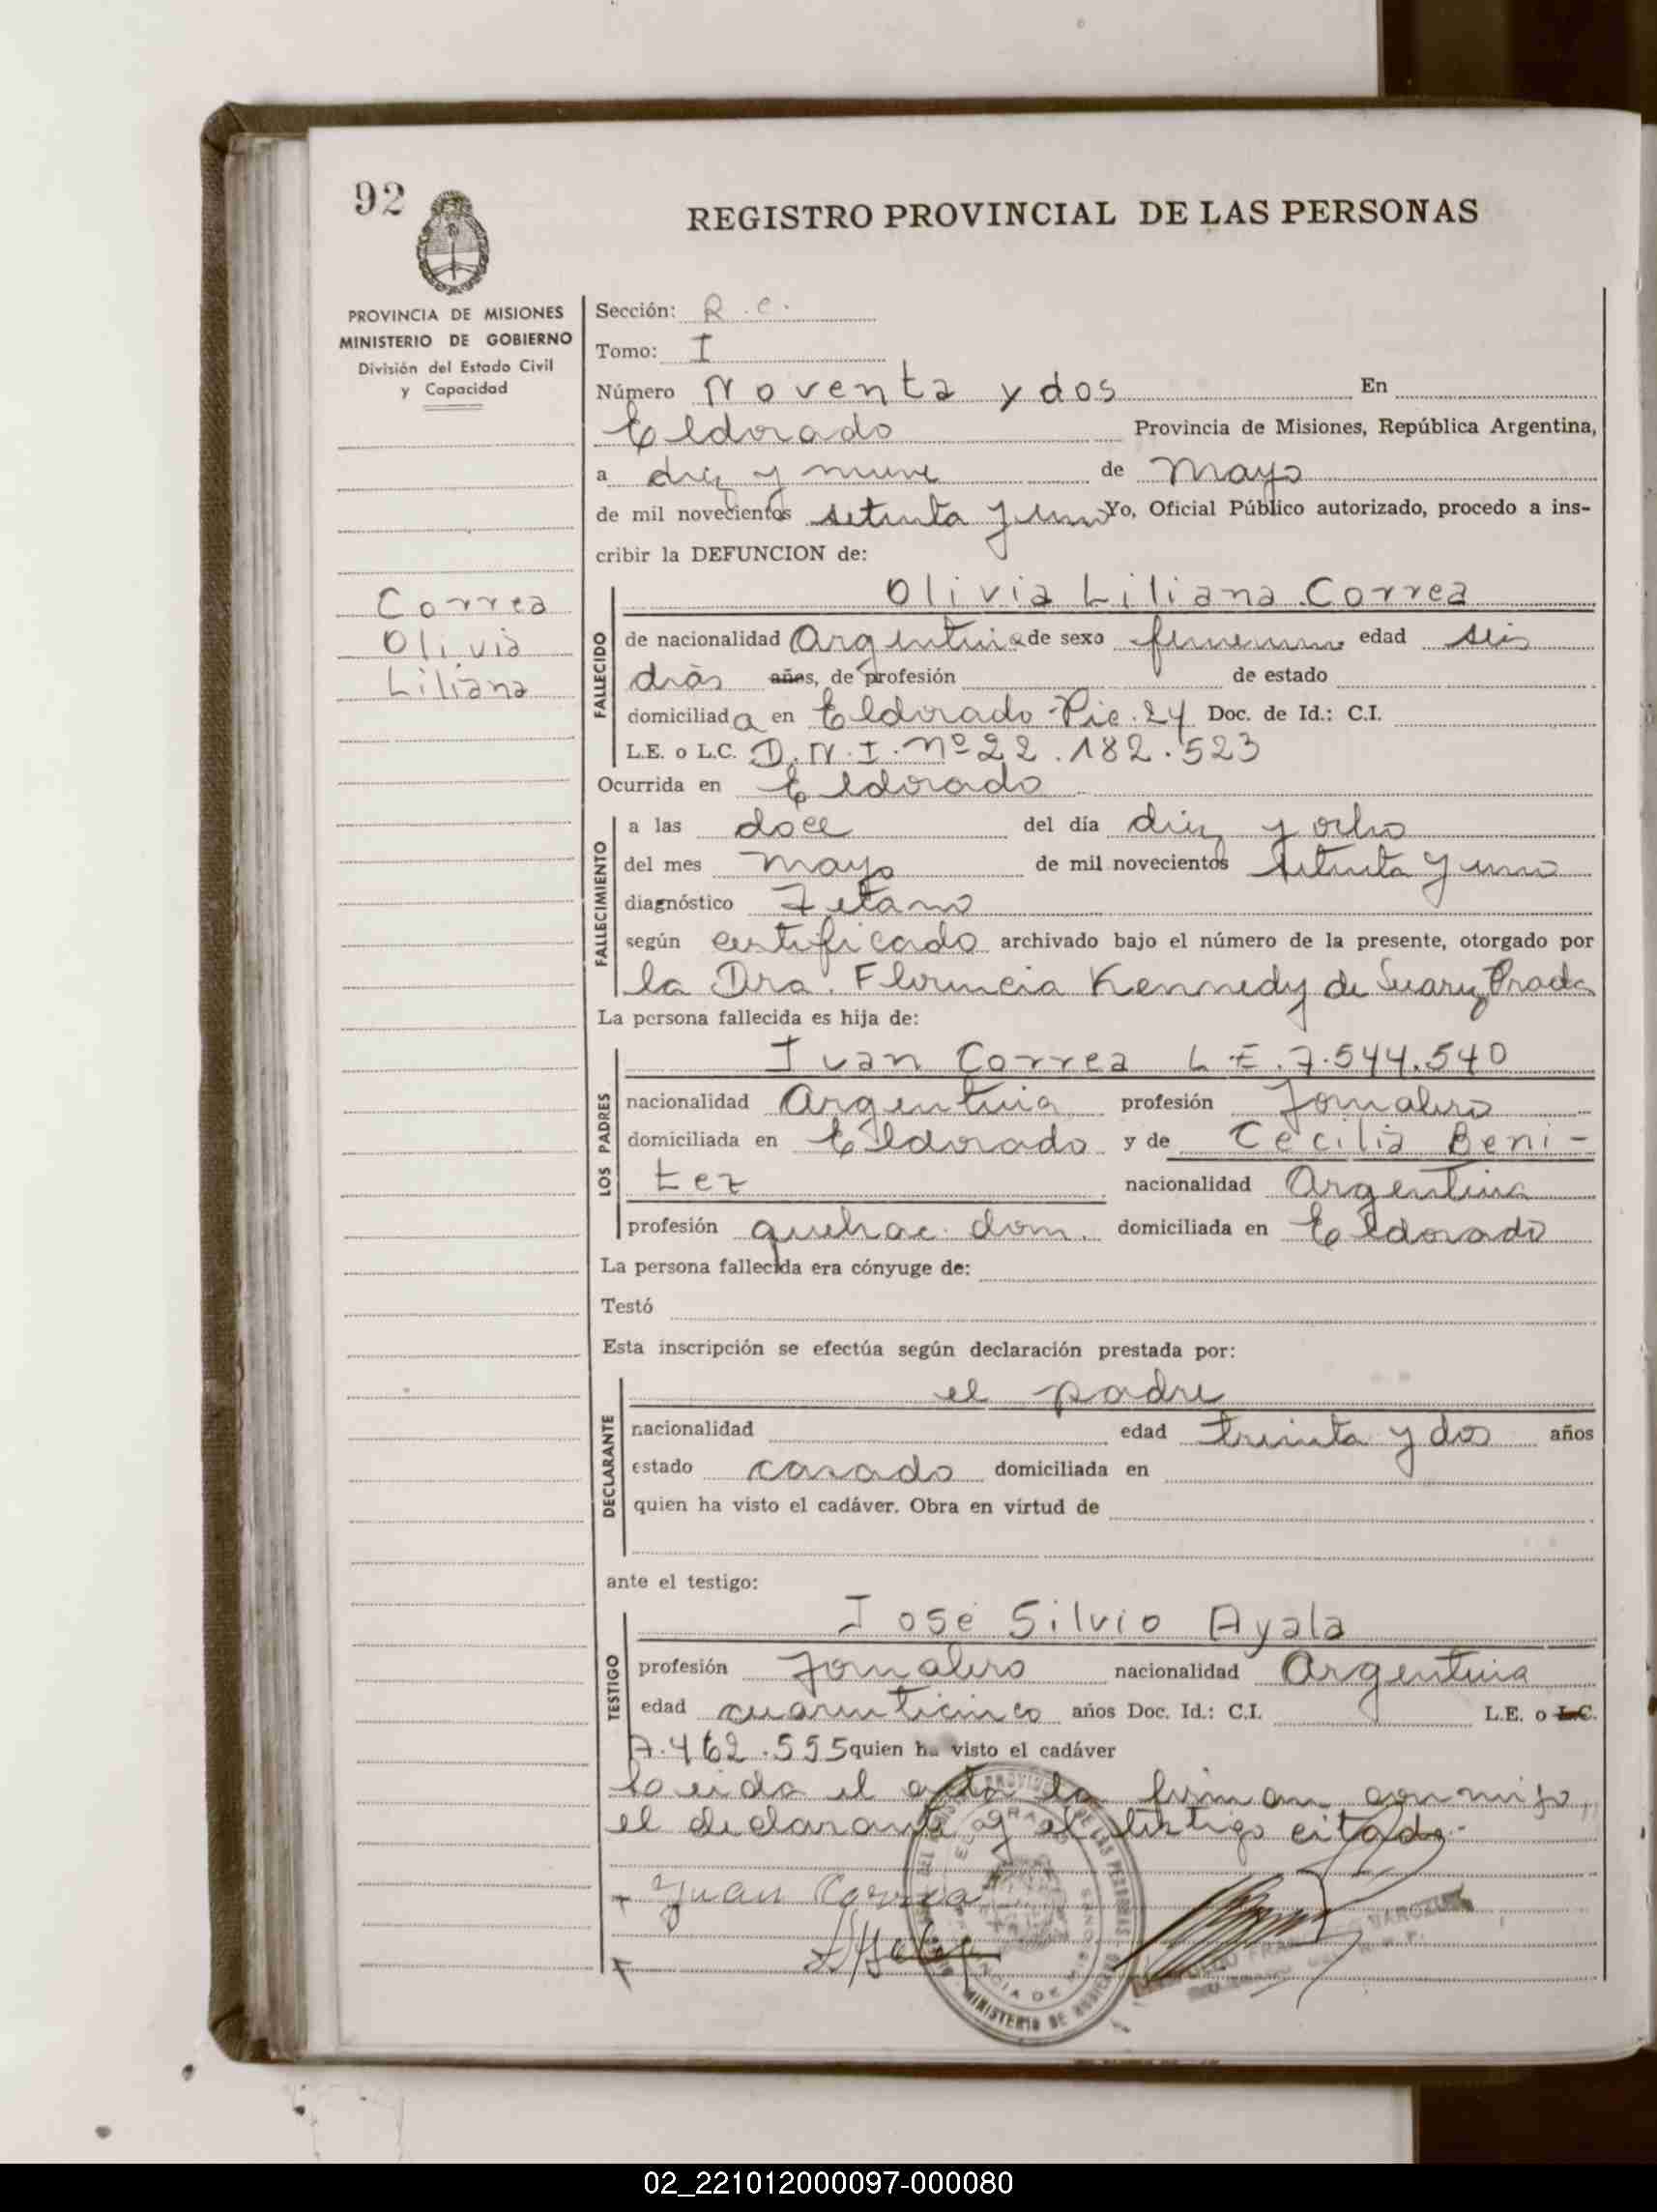 92
REGISTRO PROVINCIAL DE LAS PERSONAS
PROVINCIA DE MISIONES
MINISTERIO DE GOBIERNO
División del Estado Civil
y Capacidad
Correa
Olivia
Liliana
Sección: R.C.
Tomo: I
Número Noventa y dos En
Eldorado Provincia de Misiones, República Argentina,
a diez y nueve de Mayo
de mil novecientos setenta y uno Yo, Oficial Público autorizado, procedo a ins-
cribir la DEFUNCION de:
FALLECIDO
Olivia Liliana Correa
de nacionalidad Argentina de sexo femenino edad seis
días años, de profesión de estado
domiciliada en Eldorado Pic. 24 Doc. de Id.: C.I.
L.E. o L.C. D.N.I. Nº 22.182.523
Ocurrida en Eldorado
FALLECIMIENTO
a las doce del día diez y ocho
del mes mayo de mil novecientos setenta y uno
diagnóstico Tetano
según certificado archivado bajo el número de la presente, otorgado por
la Dra. Florencia Kennedy de Suarez Prado
La persona fallecida es hija de:
LOS PADRES
Juan Correa L.E. 7.544.540
nacionalidad Argentina profesión Jornalero
domiciliada en Eldorado y de Cecilia Beni-
tez nacionalidad Argentina
profesión quehac. dom. domiciliada en Eldorado
La persona fallecida era cónyuge de:
Testó
Esta inscripción se efectúa según declaración prestada por:
DECLARANTE
el padre
nacionalidad edad treinta y dos años
estado casado domiciliada en
quien ha visto el cadáver. Obra en virtud de
ante el testigo:
TESTIGO
José Silvio Ayala
profesión Jornalero nacionalidad Argentina
edad cuarenticinco años Doc. Id.: C.I. L.E. o L.C.
7.462.555 quien ha visto el cadáver
Leida el acta la firman conmigo,
el declarante y el testigo citado.-
Juan Correa
MINISTERIO DE
02_221012000097-000080